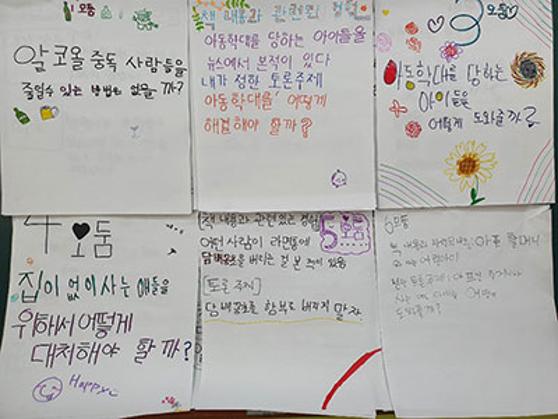 1모둠
알코올 중독 사람들을
줄일수 있는 방법은 없을 까?
책 내용과 관련된 경험
아동학대를 당하는 아이들을
뉴스에서 본적이 있다
내가 정한 토론주제
아동학대를 어떻게
해결해야 할까?
모둠
아동학대를 당하는
아이들을
어떻게 도와줄까?
4모둠
집이 없이 사는 애들을
위해서 어떻게
대처해야 할 까?
Happy
책 내용과 관련있는 경험
5모둠
어떤 사람이 라면통에
담배꽁초를 버리는 걸 본 적이 있음
[토론 주제]
담배꽁초를 함부로 버리지 말자
6모둠
책 내용과
할머니
사는
어떻게
도와줄까?